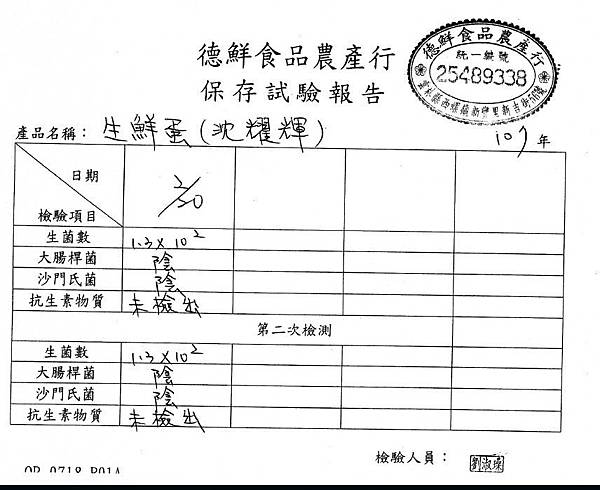 德鮮食品農產行
保存試驗報告
德鮮食品農產行
統一編號
25489338
產品名稱： 生鮮蛋(沈耀輝)
107年
日期 2/20
檢驗項目
生菌數 1.3×10²
大腸桿菌 陰
沙門氏菌 陰
抗生素物質 未檢出
第二次檢測
生菌數 1.3×10²
大腸桿菌 陰
沙門氏菌 陰
抗生素物質 未檢出
檢驗人員：